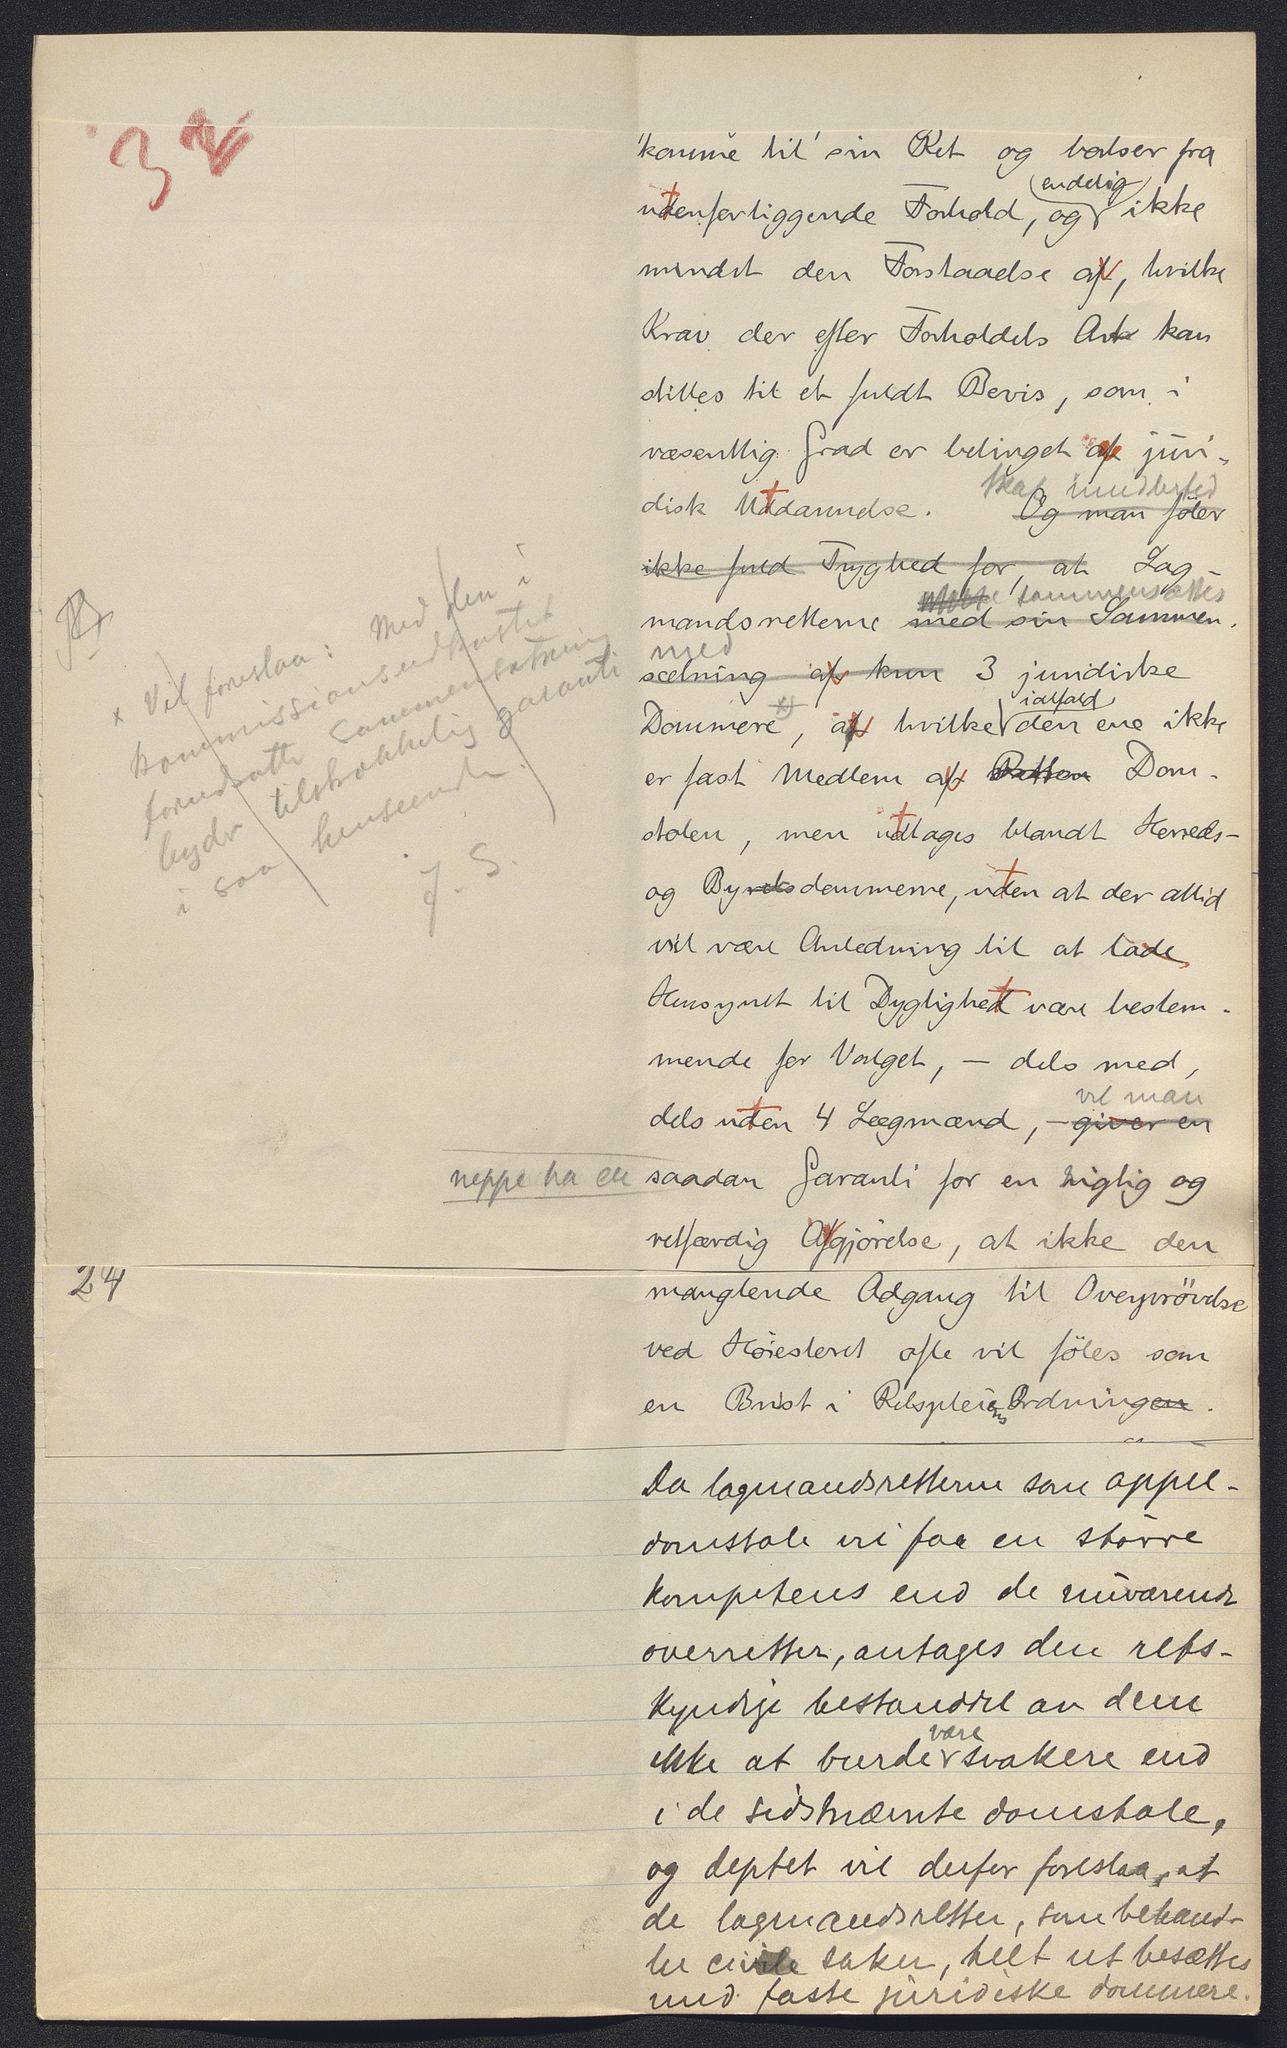 3
komme til sin Ret og løser fra
endelig
utenforliggende Forhold, og ikke
mindst den Forstaaelse af, hvilke
Krav der efter Forholdets Art kan
stilles til et fuldt Bevis, som i
væsentlig Grad er betinget af juri-
disk Utdannelse. Og man föler
Skal imidlertid
ikke fuld Tryghed for, at Lag-
sammensættes
mandsretterne med sin Sammen-
med
sætning af kun 3 juridiske
ialfald
Dommere x), af hvilke den ene ikke
er fast Medlem af Retten Dom-
stolen, men uttages blandt Herreds-
og Byretsdommerne, uten at der altid
vil være Anledning til at lade
Hensynet til Dygtighet være bestem-
mende for Valget, – dels med,
vil man
dels uten 4 Lægmænd, – giver en
neppe ha en
saadan Garanti for en rigtig og
retfærdig Afgjörelse, at ikke den
24
manglende Adgang til Overprövelse
ved Høiesteret ofte vil föles som
en Brist i Retspleiens Ordningen.
Da lagmandsretterne som appel-
domstole vil faa en större
kompetens end de nuværende
overretter, antages den rets-
kyndige bestanddel av dem
være
ikke at burde svakere end
i de sidstnævnte domstole,
og deptet vil derfor foreslaa, at
de lagmandsretter, som behand-
ler civile saker, helt ut besættes
med faste juridiske dommere.
x Vil foreslaa: Med den i
kommissionsudkastet
forudsatte sammensætning
byder tilstrækkelig garanti
i saa henseende.
J. S.